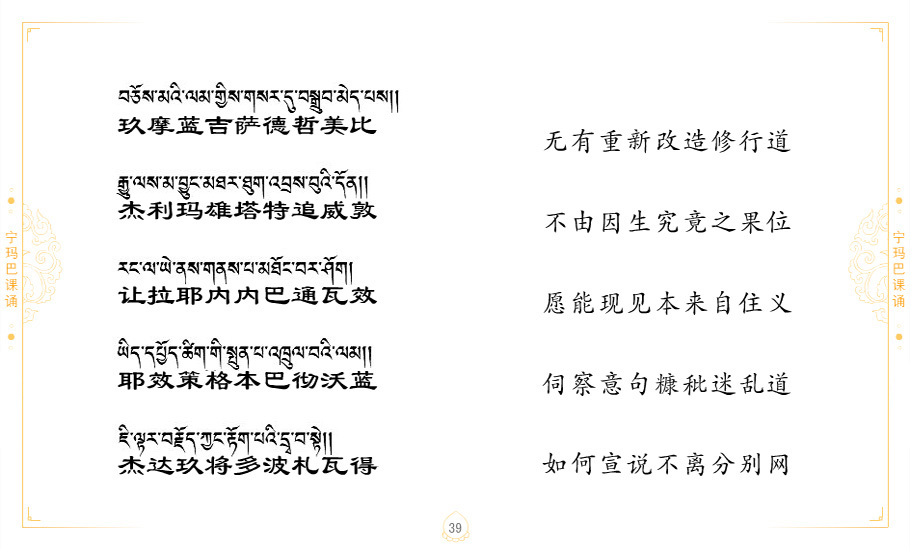 བཅོས་མའི་ལམ་གྱིས་གསར་དུ་བསྒྲུབ་མེད་པས།།
玖摩蓝吉萨德哲美比
无有重新改造修行道
རྒྱུ་ལས་མ་བྱུང་མཐར་ཐུག་འབྲས་བུའི་དོན།།
杰利玛雄塔特追威敦
不由因生究竟之果位
རང་ལ་ཡེ་ནས་གནས་པ་མཐོང་བར་ཤོག།
让拉耶内内巴通瓦效
愿能现见本来自住义
ཡིད་དཔྱོད་ཚིག་གི་སྤུན་པ་འཁྲུལ་བའི་ལམ།།
耶效策格本巴彻沃蓝
伺察意句糠秕迷乱道
ཇི་ལྟར་བརྗོད་ཀྱང་རྟོག་པའི་དྲྭ་བ་སྟེ།།
杰达玖将多波札瓦得
如何宣说不离分别网
宁玛巴课诵
宁玛巴课诵
39